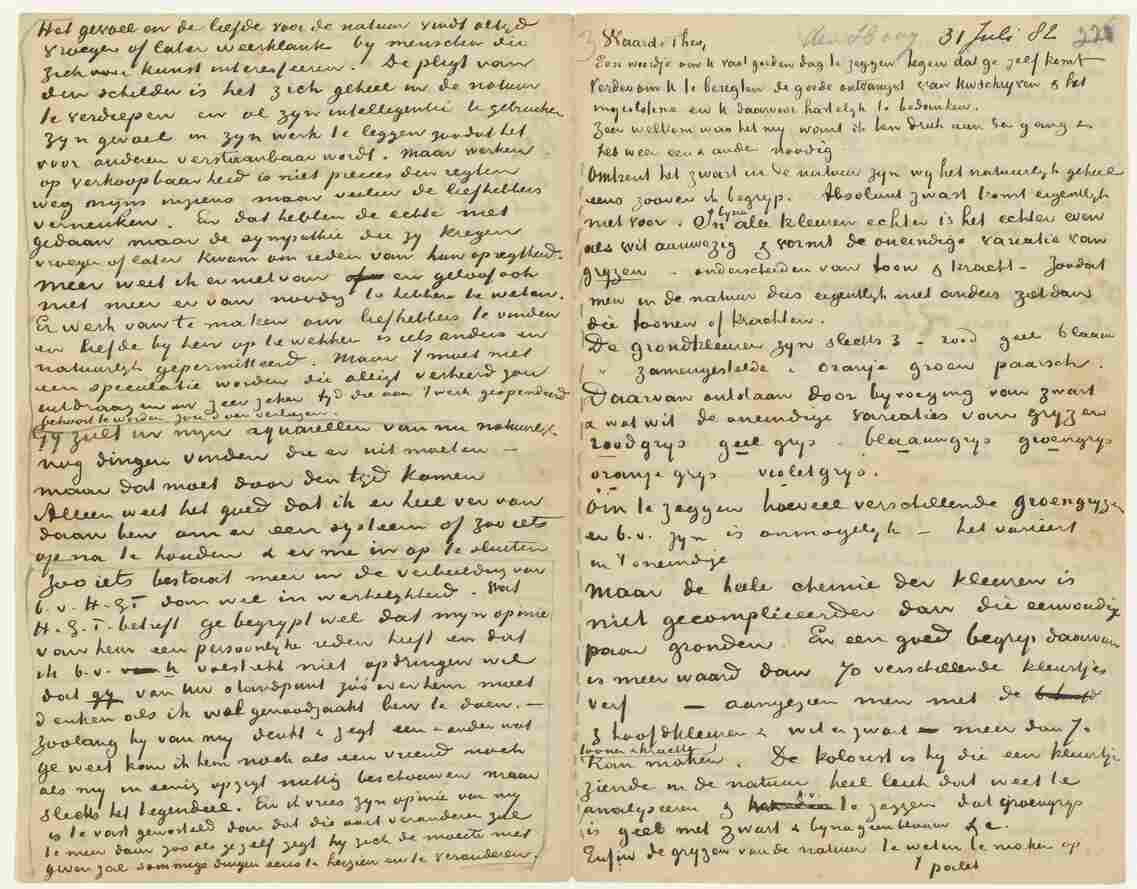 Het gevoel en de liefde voor de natuur vindt altijd
vroeger of later weerklank by menschen die
zich voor kunst interesseeren. De pligt van
den schilder is het zich geheel in de natuur
te verdiepen en al zyn intelligentie te gebruiken
zyn gevoel in zyn werk te leggen zoodat het
voor anderen verstaanbaar wordt. Maar werken
op verkoopbaarheid is niet precies den regten
weg myns inziens maar veeleer de liefhebbers
verneuken. En dat hebben de echte niet
gedaan maar de sympathie die zy kregen
vroeger of later kwam om reden van hun opregtheid.
Meer weet ik er niet van en geloof ook
niet meer er van noodig te hebben te weten.
Er werk van te maken om liefhebbers te vinden
en liefde by hen op te wekken is iets anders en
natuurlijk gepermitteerd. Maar 't moet niet
een speculatie worden die allligt verkeerd zou
uitdraaijen en zeer zeker tyd die aan 't werk gespendeerd
behoort te worden zou doen verliezen.
Gy zult in myn aquarellen van nu natuurlijk
nog dingen vinden die er uit moeten –
maar dat moet door den tyd komen
Alleen weet het goed dat ik er heel ver van
daan ben om er een systeem of zoo iets
op na te houden & er me in op te sluiten
Zoo iets bestaat meer in de verbeelding van
b.v. H.G.T. dan wel in werkelijkheid. Wat
H.G.T. betreft ge begrypt wel dat myn opinie
van hem een persoonlyke reden heeft en dat
ik b.v. U volstrekt niet opdringen wil
dat gy van uw standpunt zóó over hem moet
denken als ik wel genoodzaakt ben te doen. –
Zoolang hy van my denkt & zegt een & ander wat
ge weet kan ik hem noch als een vriend noch
als my in eenig opzigt nuttig beschouwen maar
slechts het tegendeel. En ik vrees zyn opinie van my
is te vast geworteld dan dat die ooit veranderen zal
te meer daar zooals je zelf zegt hy zich de moeite niet
geven zal sommige dingen eens te herzien en te veranderen.
Waarde Theo,
31 Juli 82
Een woordje om U vast goeden dag te zeggen tegen dat ge zelf komt
Verder om U te berigten de goede ontvangst van Uw schryven & het
ingeslotene en U daarvoor hartelyk te bedanken.
Zeer welkom was het my want ik ben druk aan den gang &
heb weer een & ander noodig
Omtrent het zwart in de natuur zyn wy het natuurlijk geheel
eens zoover ik begryp. Absoluut zwart komt eigentlyk
niet voor. In alle kleuren echter is het echter even
als wit aanwezig & vormt de oneindige variatie van
gryzen – onderscheiden van toon & kracht – Zoodat
men in de natuur dus eigentlyk niet anders ziet dan
die toonen of krachten.
De grondkleuren zyn slechts 3 – rood geel blaauw
" zamengestelde " oranje groen paarsch.
Daarvan ontstaan door byvoeging van zwart
& wat wit de oneindige variaties van gryzen
roodgrys geel grys – blaauwgrys groengrys
oranje grys violetgrys.
Om te zeggen hoeveel verschillende groengryzen
er b.v. zyn is onmogelyk – het varieert
in 't oneindige
Maar de heele chemie der kleuren is
niet gecompliceerder dan die eenvoudige
paar gronden. En een goed begrip daarvan
is meer waard dan 70 verschillende kleurtjes
verf – aangezien men met de
3 hoofdkleuren & wit & zwart – meer dan 70
toonen & krachten
kan maken. De kolorist is hy die een kleurtje
ziende in de natuur heel leuk dat weet te
analyseeren & b.v. te zeggen dat groengrys
is geel met zwart & byna geen blaauw &c.
Enfin de gryzen van de natuur te weten te maken op
't palet